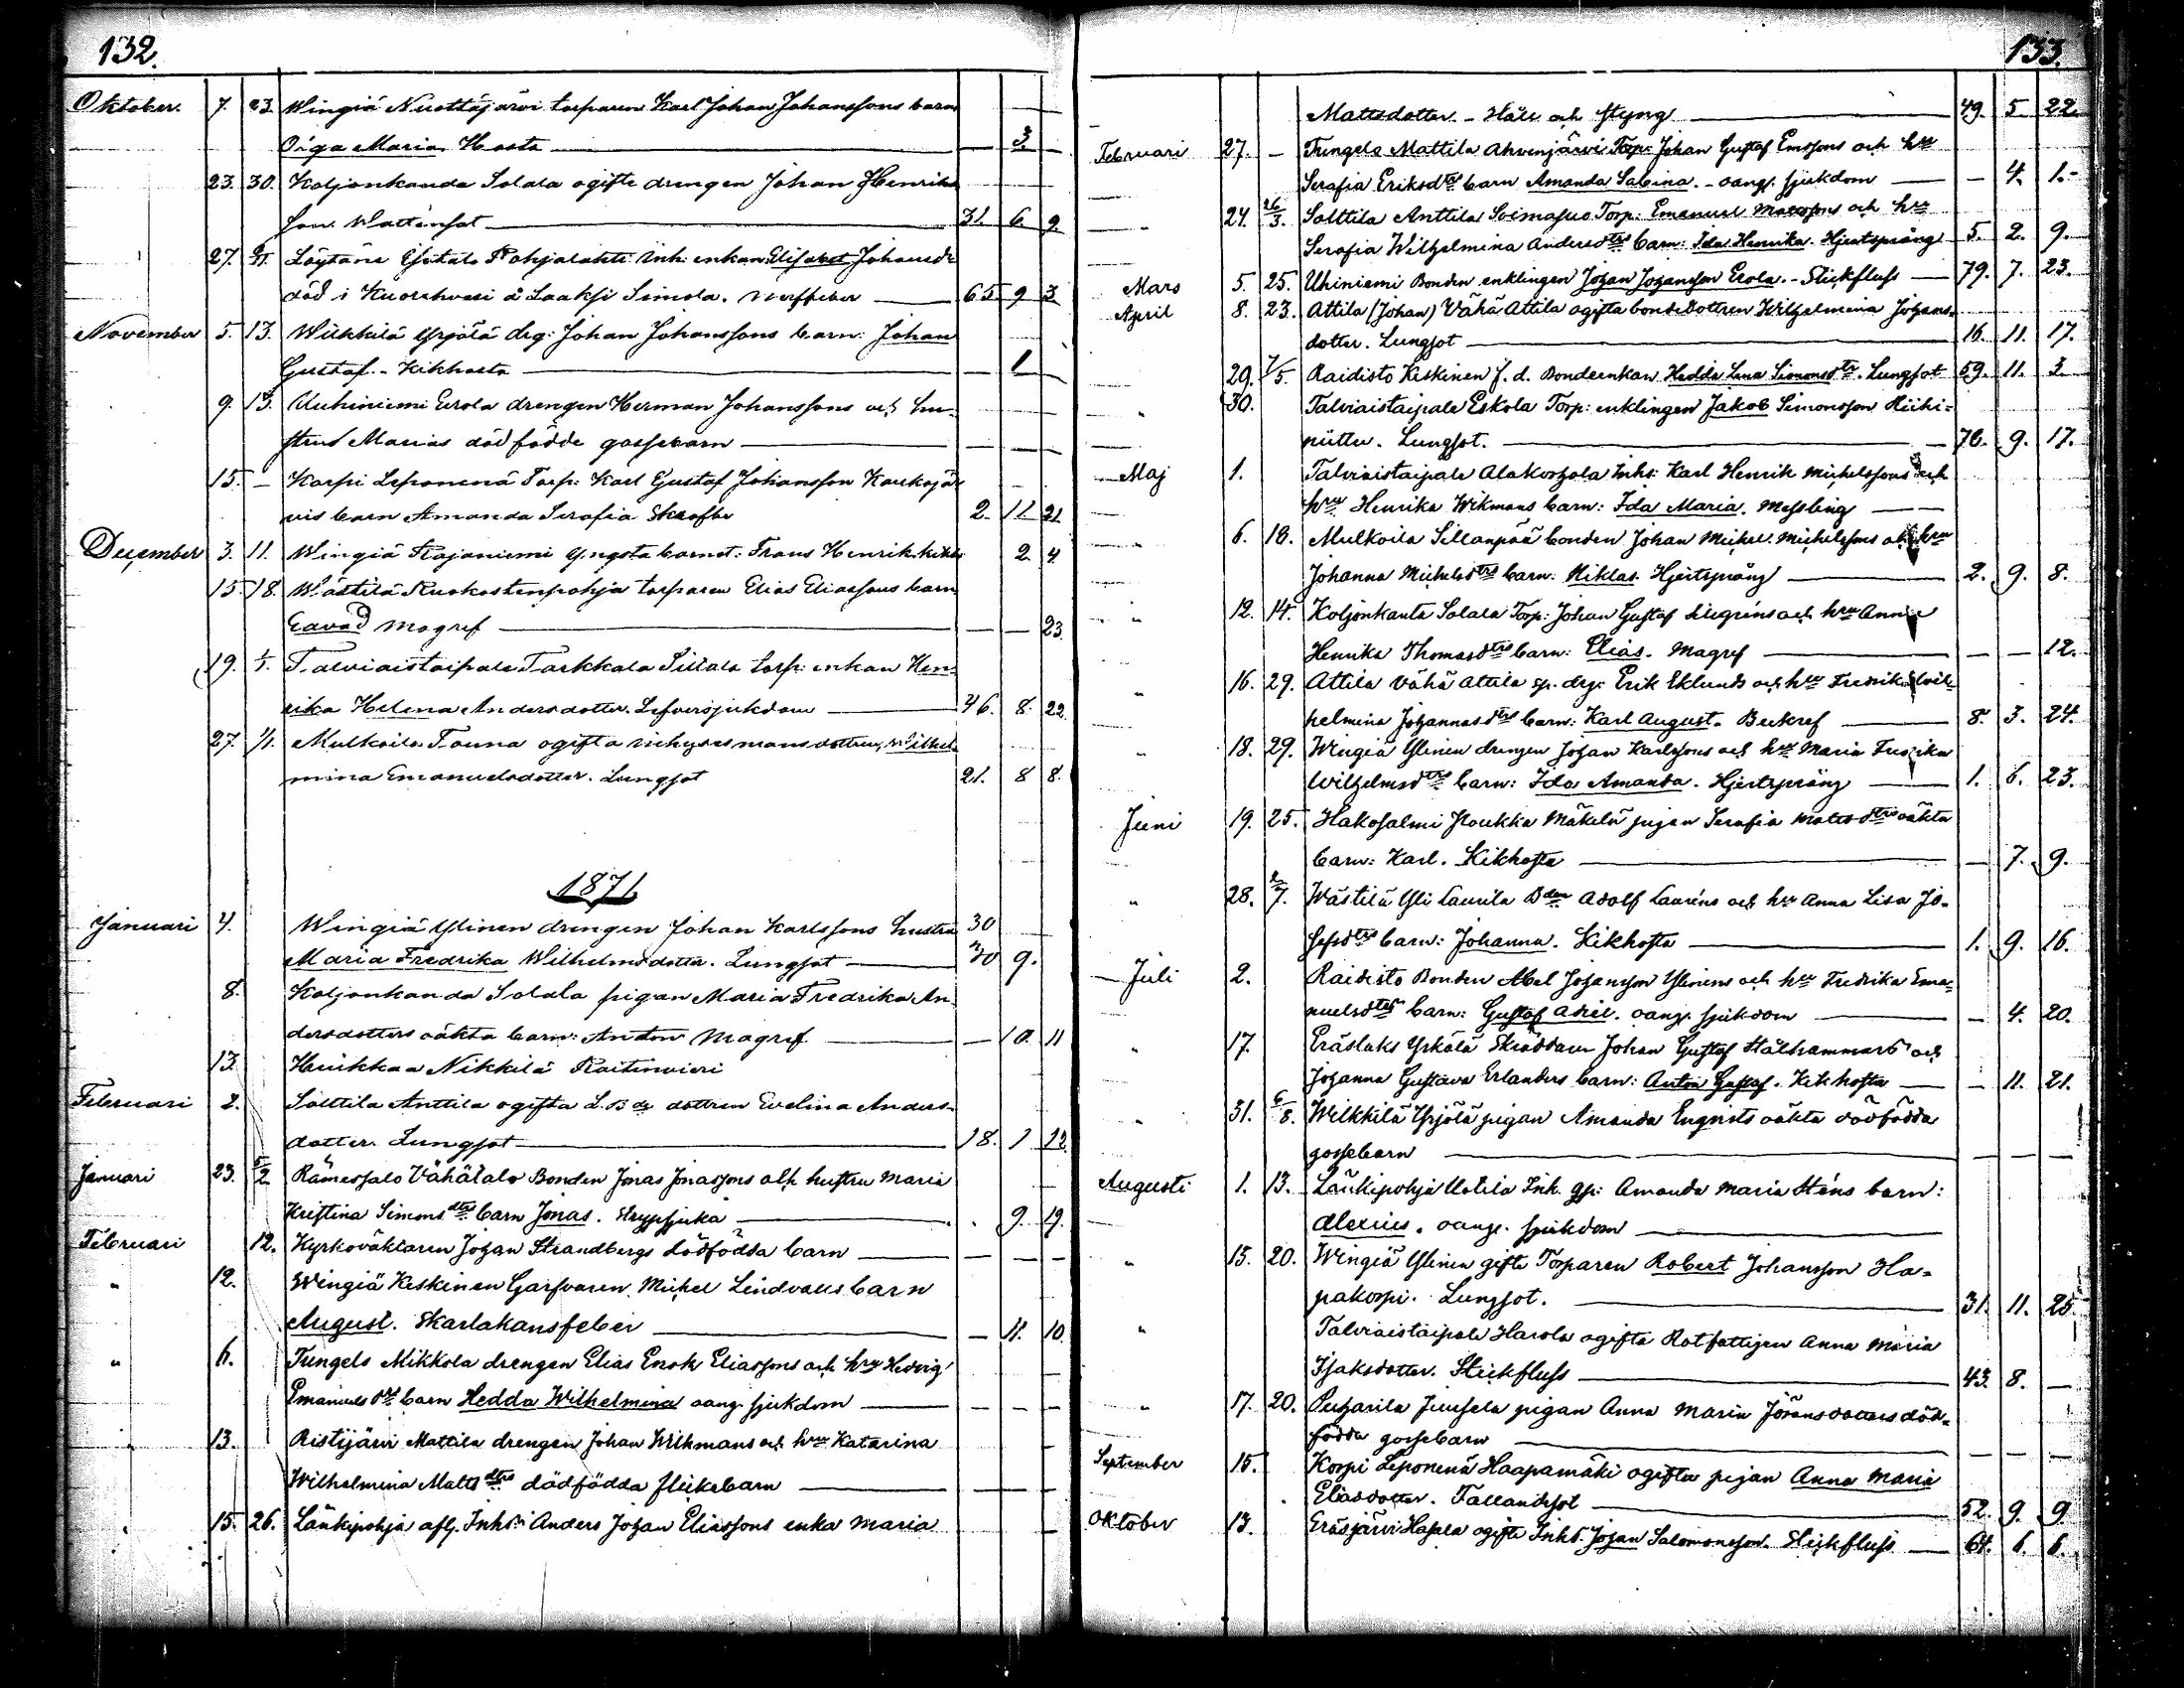 132.
Oktober. 7. 23. Wingiä Nuottajärvi torparen Karl Johan Johanssons barn
Olga Maria Hosta — 3 —
23. 30. Koljonkanda Solala ogifte drengen Johan Henriks
son. Wattensot — 31. 6 9
27. Löytäne Esitalo Pohjalahti inh: enkan Elisabet Johansdr
död i Kuorehvesi å Laaksi Simola. Nerffeber — 65 9 3
November 5. 13. Wilkkilä Yrjölä drg: Johan Johanssons barn: Johan
Gustaf. - Kikhosta — 1 —
9. 13. Auhiniemi Erola drengen Herman Johanssons och hu-
strus Marias dödfödde gossebarn —
15. — Korpi Leponenä Torp: Karl Gustaf Johansson Kaukajär
vis barn Amanda Serafia Skrofler 2. 11 21
December 3. 11. Wingiä Rajaniemi yngsta barnet: Frans Henrik kikh. 2 4
15. 18. Wästilä Ruokostenpohja torparen Elias Eliassons barn
Edvard Magref — — 23.
19. 1/1. Talviaistaipale Tarkkala Sillala torp: enkan Hen-
rika Helena Andersdotter. Lefversjukdom — 46. 8. 22.
27. 1/1. Mulkoila Tauna ogifta inhysesmansdottren Wilhel-
mina Emanuelsdotter. Lungsot 21. 8 8.
1871
Januari 4. Wingiä Ylinen drengen Johan Karlssons hustru 30
Maria Fredrika Wilhelmsdotter. Lungsot — 9.
8. Koljonkanda Solala pigan Maria Fredrika An-
dersdotters oäkta barn: Anton Magref. — — 10 11
13. Heinikkaa Nikkilä Raitinvieri
Februari 2. Solttila Anttila ogifta dottren Evelina Anders-
dotter. Lungsot — 18. 1 12
Januari 23. 5/2 Rämessalo Vähätalo Bonden Jonas Jonassons och hustru Maria
Kristina Simonsdtrs barn Jonas. Strypsjuka — 9. 19.
Februari 12. Kyrkoväktaren Johan Strandbergs dödfödda barn — — —
" 12. Wingiä Keskinen Garfvaren Mickel Lindvalls barn
August. Skarlakansfeber — — 11. 10.
" 6. Tungelo Mikkola drengen Elias Enok Eliassons och hru Hedvig
Emanuelsdtrs barn Hedda Wilhelmina oang. sjukdom — — — —
13. Ristijärvi Mattila drengen Johan Wikmans och hru Katarina
Wilhelmina Mattsdtrs dödfödda flickebarn — — — —
15. 26. Länkipohja afl. Inhs: Anders Johan Eliassons enka Maria
133.
Mattsdotter. - Håll och styng — 49. 5 22.
Februari 27. — Tungelo Mattila Ahvenjärvi Torp: Johan Gustaf Emssons och hru
Serafia Eriksdtrs barn Amanda Sabina. - oang. sjukdom — — 4. 1.-
" 24. 26/3. Solttila Anttila Soimasuo Torp: Emanuel Mattssons och hru
Serafia Wilhelmina Andersdtrs barn: Ida Henrika. Hjertsprång 5. 2. 9.
Mars 5. 25. Uhiniemi Bonden enklingen Johan Johansson Erola. - Stickfluss — 79. 7. 23.
April 8. 23. Attila (Johan) Vähä Attila ogifta bondedottren Wilhelmina Johans-
dotter. Lungsot — 16. 11. 17.
29. 7/5. Raidisto Keskinen f. d. Bondeenkan Hedda Lena Simonsdtr. Lungsot 59. 11. 3.
" 30. Talviaistaipale Eskola Torp: enklingen Jakob Simonsson Hiihi-
niittu. Lungsot. — 76. 9. 17.
Maj 1. Talviaistaipale Alakorhola Inhs: Karl Henrik Mickelssons och
hru Henrika Wikmans barn: Ida Maria. Messling — —
" 6. 18. Mulkoila Sillanpää bonden Johan Mickel Mickelssons och hru
Johanna Mickelsdtrs barn: Niklas. Hjertsprång — 2. 9. 8.
" 12. 14. Koljonkanta Solala Torp: Johan Gustaf och hru Anna
Henrika Thomasdtrs barn: Elias. Magref — — — 12.
" 16. 29. Attila Vähä Attila sp. drg: Erik Eklunds och hru Fredrika Wil-
helmina Johannasdtrs barn: Karl August. Beckref — 8. 3. 24.
" 18. 29. Wingiä Ylinen drengen Johan Karlssons och hru Maria Fredrika
Wilhelmsdtrs barn: Ida Amanda. Hjertsprång — 1. 6. 23.
Juni 19. 25. Hakosalmi Noukka Mäkelä pigan Serafia Mattsdtrs oäkta
barn: Karl. Kikhosta — — 7. 9.
" 28. 2/7. Wästilä Yli Laurila Bden Adolf Lauréns och hru Anna Lisa Jo-
sefsdtrs barn: Johanna. Kikhosta — 1. 9. 16.
Juli 2. Raidisto Bonden Abel Johansson Ylinens och hru Fredrika Ema-
nuelsdtrs barn: Gustaf Abiel. oang. sjukdom — — 4. 20.
" 17. Eräslaks Yrkölä Skräddaren Johan Gustaf Stålhammars och
Johanna Gustava Erlanders barn: Anton Gustaf. Kikhosta — — 11. 21.
" 31. 6/8. Wilkkilä Yrjölä pigan Amanda Engvists oäkta dödfödda
gossebarn — — — —
Augusti 1. 13. Länkipohja Uotila Inh. gp: Amanda Maria Sténs barn:
Alexius. oang. sjukdom —
" 15. 20. Wingiä Ylinen gifte Torparen Robert Johansson Ha-
pakorpi. Lungsot. — 31. 11. 25.
" Talviaistaipale Harola ogifta Rotfattigen Anna Maria
Isaksdotter. Stickfluss — 43. 8. —
" 17. 20. Puharila Juusela pigan Anna Maria Göransdotters död-
födda gossebarn — — — —
September 15. Korpi Leponenä Haapamäki ogifta pigan Anna Maria
Eliasdotter. Fallandesot — 52. 9. 9.
Oktober 13. Eräsjärvi Hasala ogifte Inhs. Johan Salomonsson. Stickfluss — 64. 6. 6.